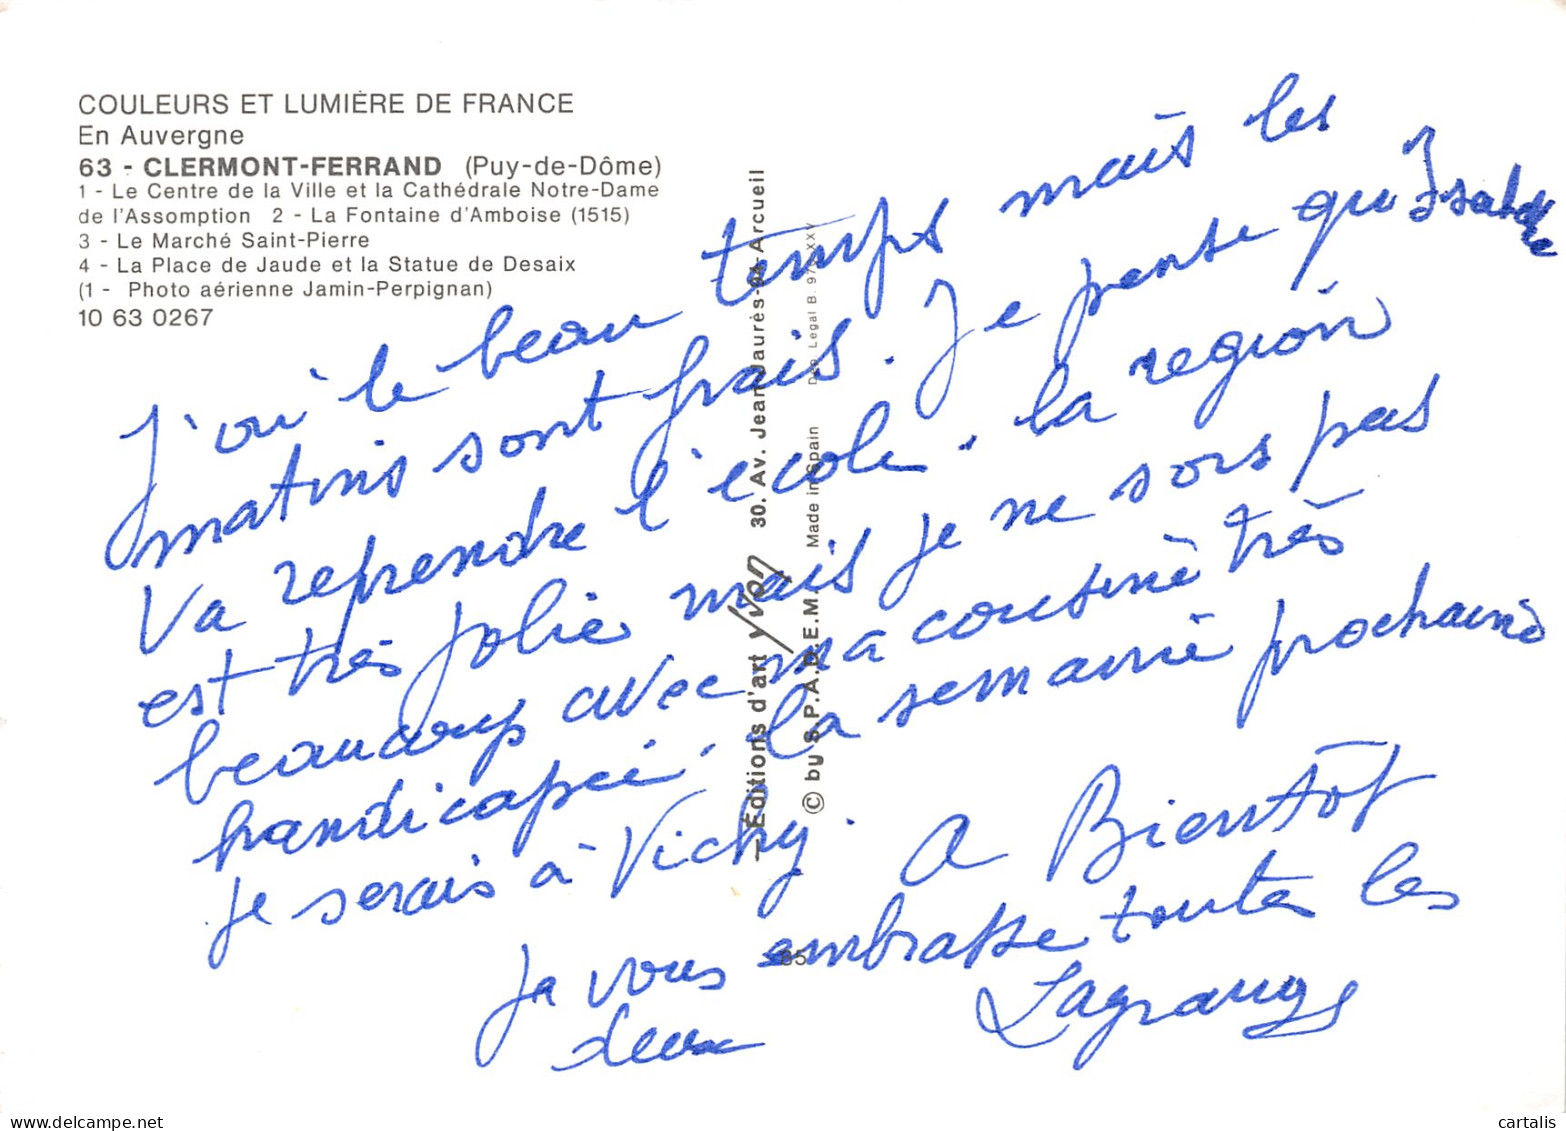 COULEURS ET LUMIÈRE DE FRANCE
En Auvergne
63 - CLERMONT-FERRAND (Puy-de-Dôme)
1 - Le Centre de la Ville et la Cathédrale Notre-Dame
de l'Assomption 2 - La Fontaine d'Amboise (1515)
3 - Le Marché Saint-Pierre
4 - La Place de Jaude et la Statue de Desaix
(1 - Photo aérienne Jamin-Perpignan)
10 63 0267
J'ai le beau temps mais les
matins sont frais. Je pense qu'Isabelle
va reprendre l'école. la region
est très jolie mais je ne sors pas
beaucoup avec ma cousine très
handicapée. la semaine prochaine
je serais à Vichy. A Bientôt
Je vous embrasse toutes les
deux
Lagrange
Éditions d'art Yvon 30. Av. Jean-Jaurès-94-Arcueil
© by S.P.A.D.E.M. Made in Spain Dép. Legal B.